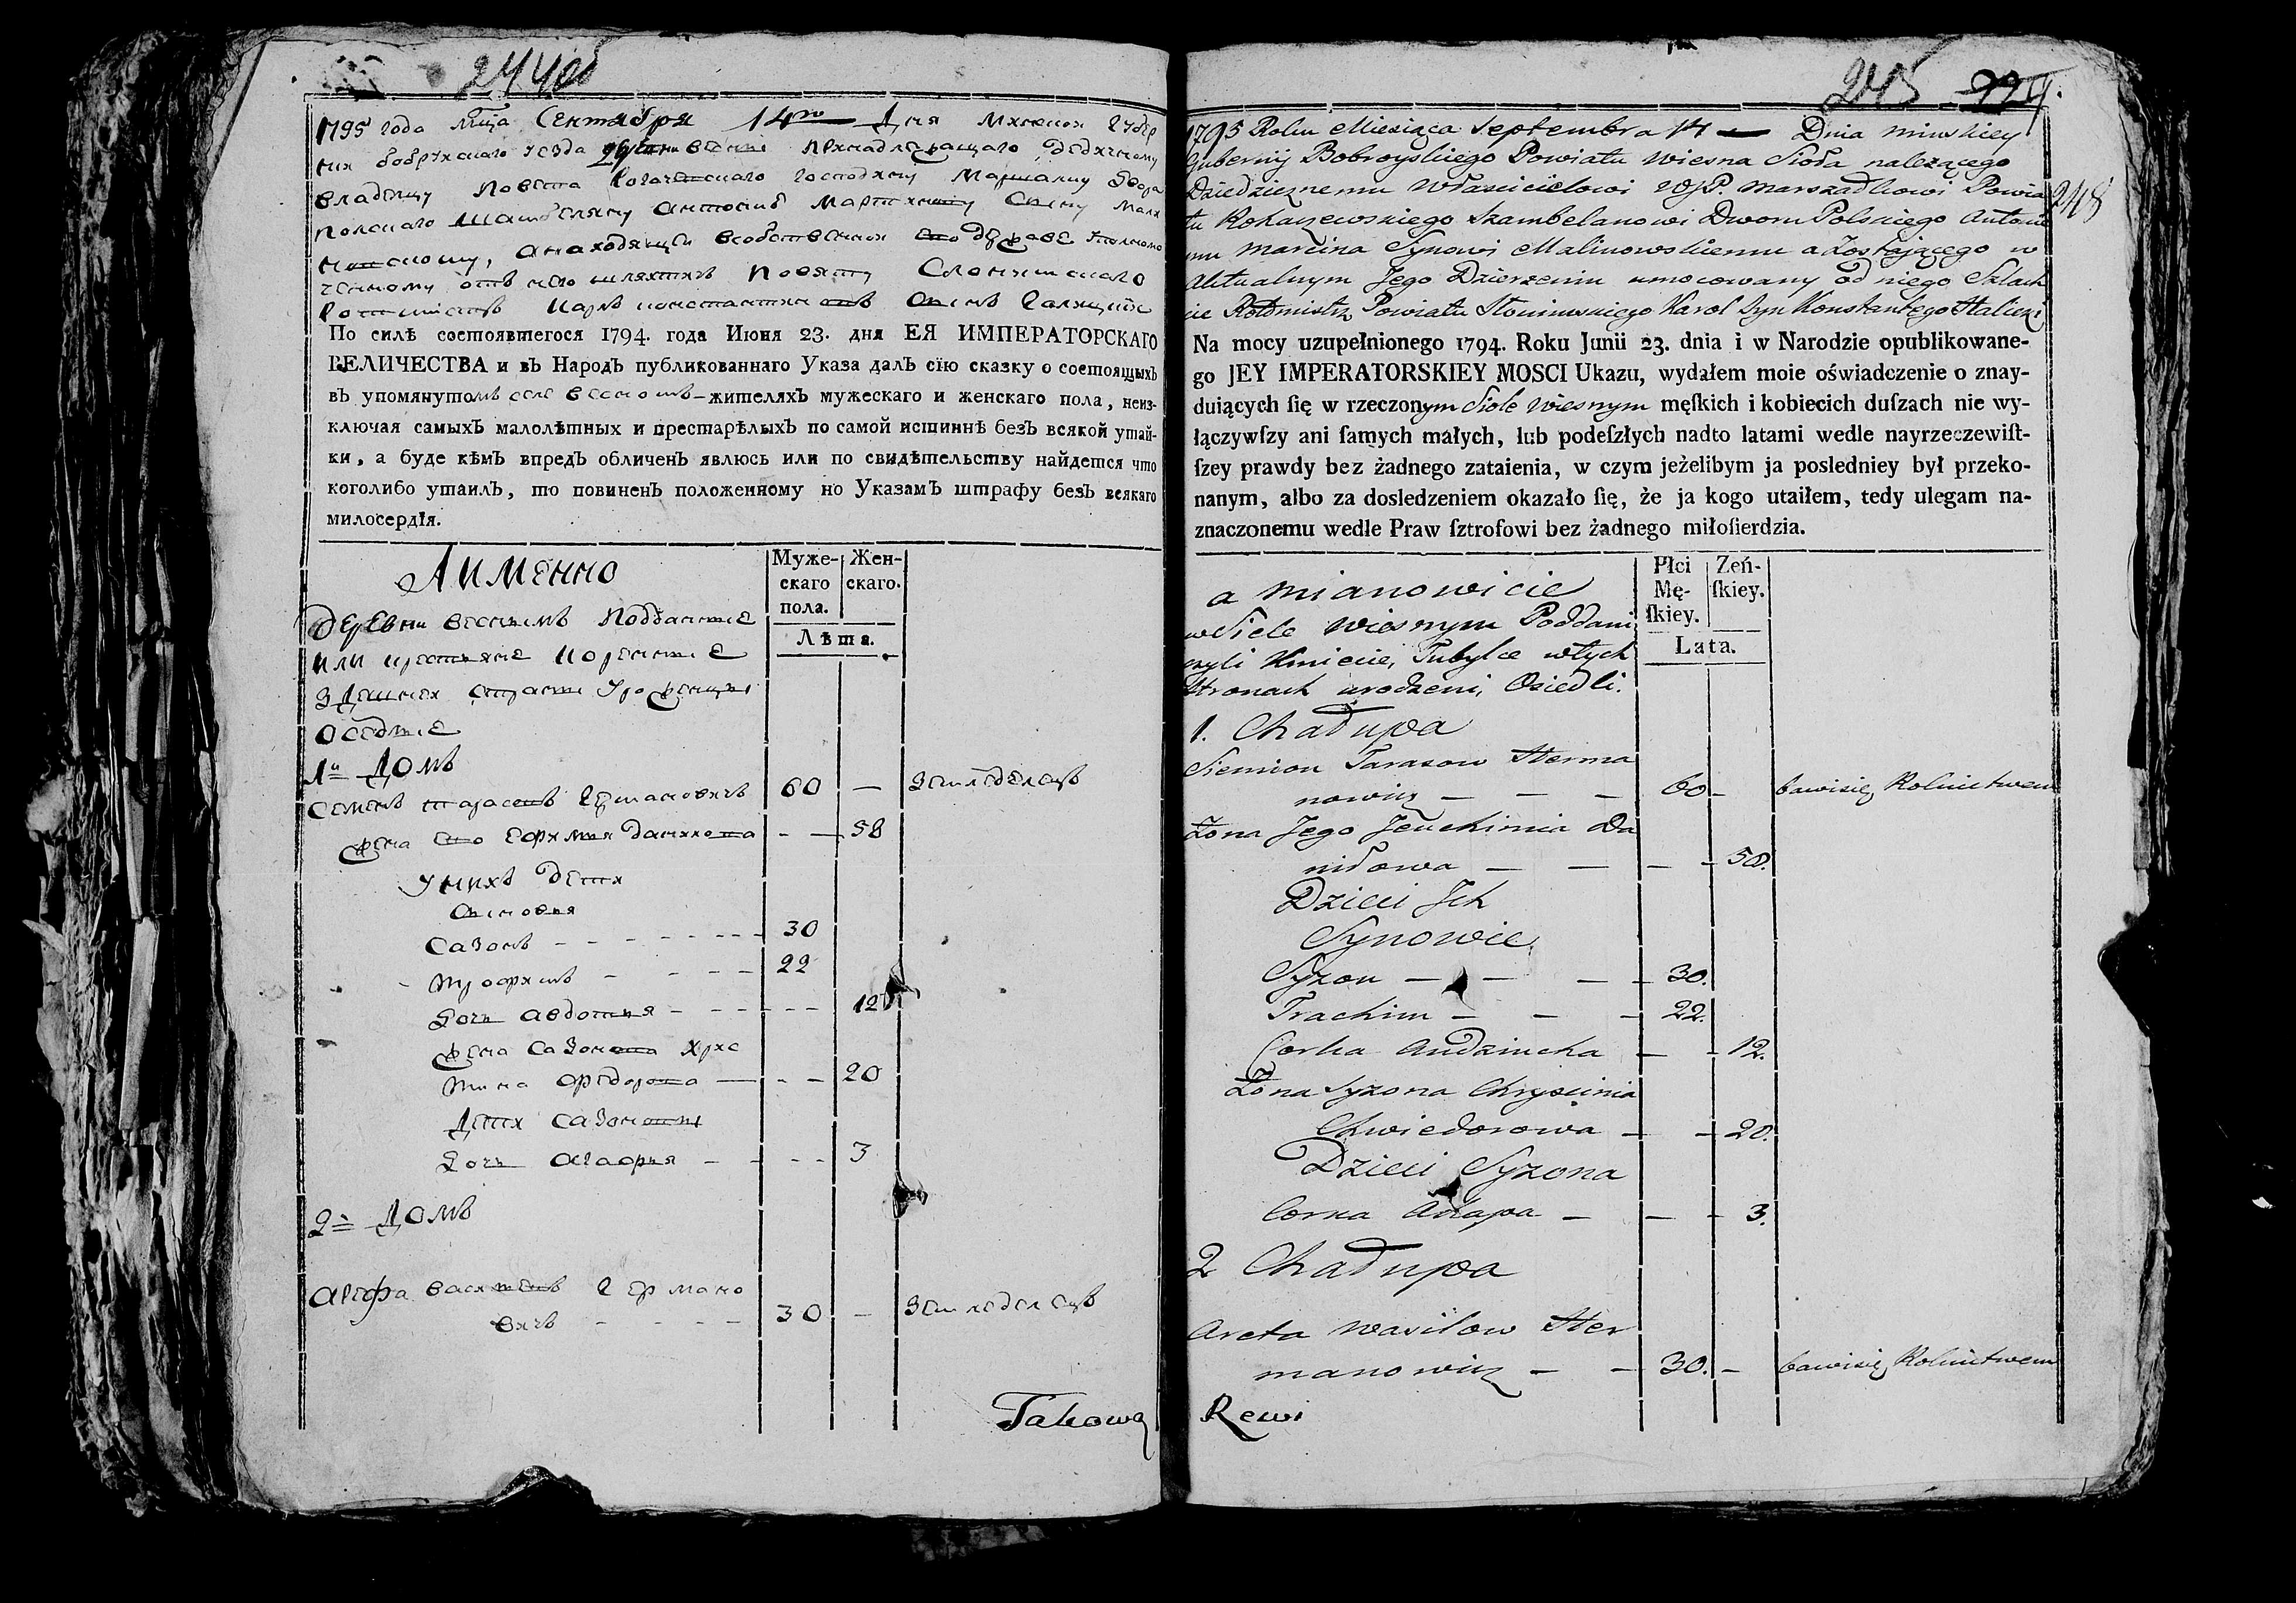 244об
1795 года мца Сентября 14го Дня Минской Губер
нии бобруйскаго уезда деревни весны принадлежащаго дедичному
владельцу повета Рогачевскаго господину Маршалку двора
полскаго Шамбеляну антонию мартинову Сыну Мали
новскому, анаходящей всобственной его державе уполномо
ченному отъ него шляхтичъ повяту Слонимскаго
Ротмистръ Карлъ константиновъ Сынъ Галицкий
По силѣ состоявшегося 1794. года Июня 23. дня ЕЯ ИМПЕРАТОРСКАГО
ВЕЛИЧЕСТВА и въ Народъ публикованнаго Указа далъ сїю сказку о состоящыхъ
въ упомянутомъ селе весномъ жителяхъ мужескаго и женскаго пола, неиз-
ключая самыхъ малолѣтныхъ и престарѣлыхъ по самой истиннѣ безъ всякой утай-
ки, а буде кѣмъ впредъ обличенъ явлюсь или по свидѣтельству найдется что
коголибо утаилъ, то повиненъ положенному по Указамъ штрафу безъ всякаго
милосердїя.
Аимянно
Муже-
скаго
пола.
Жен-
скаго.
Лѣта.
деревни веснымъ Подданные
или крестьяне коренные
Здешней страны Уроженцы
Оседлые
1й Домъ
Семенъ тарасовъ Германовичъ 60 — Земледелецъ
жена его Ефимия данилова - — 58
У них дети
Сыновья
Сазонъ - - - 30
трофимъ - - - 22
Дочь авдотья - - - 12
жена Сазонова Хрис
тина федорова — - - 20
Дети Сазоновы
Дочь Агафья - - - 3
2й Домъ
Арефа васильевъ Германо
вичъ - - - 30 — Земледелецъ
Takowa
245 224.
248
1795 Roku Miesiąca Septembra 14 — Dnia minskiey
Gubernij Bobroyskiego Powiatu Wiesna Sioła należącego
Dziedzicznemu Właścicielowi WJP. Marszadkowi Powia
tu Rohaczewskiego Szambelanowi Dworu Polskiego Antonie
mu Marcina Synowi Malinowskiemu a Zostającego w
Aktualnym Jego Dzierzeniu umocowany od niego Szlach
cic Rotmistrz Powiatu Słonimskiego Karol Syn Konstantego Halicki
Na mocy uzupełnionego 1794. Roku Junii 23. dnia i w Narodzie opublikowane-
go JEY IMPERATORSKIEY MOSCI Ukazu, wydałem moie oświadczenie o znay-
duiących ſię w rzeczonym Siole Wiesnym męſkich i kobiecich duſzach nie wy-
łączywſzy ani ſamych małych, lub podeſzłych nadto latami wedle nayrzeczewiſt-
ſzey prawdy bez żadnego zataienia, w czym jeżelibym ja posledniey był przeko-
nanym, albo za dosledzeniem okazało ſię, że ja kogo utaiłem, tedy ulegam na-
znaczonemu wedle Praw ſztrofowi bez żadnego miłoſierdzia.
a mianowicie
Płci
Mę-
ſkiey.
Zeń-
ſkiey.
Lata.
w Siele Wiesnym Poddani
czyli Kmiecie, Tubylce wtych
Stronach urodzeni, Osiedli.
1. Chałupa
Siemion Tarasow Herma
nowicz — — — 60 — bawi się Rolnictwem
Żona Jego Jeuchimia Da
niłowa — — — 58.
Dzieci Jch
Synowie
Syzon — — — 30.
Trachim — — — 22.
Corka Audziucha — — 12.
Żona Syzona Chrysćinia
Chwiedorowa — — 20.
Dzieci Syzona
Corka Ahapa — — — 3.
2 Chałupa
Areta Wasilow Her
manowicz — — 30. — bawi się Rolnictwem
Rewi